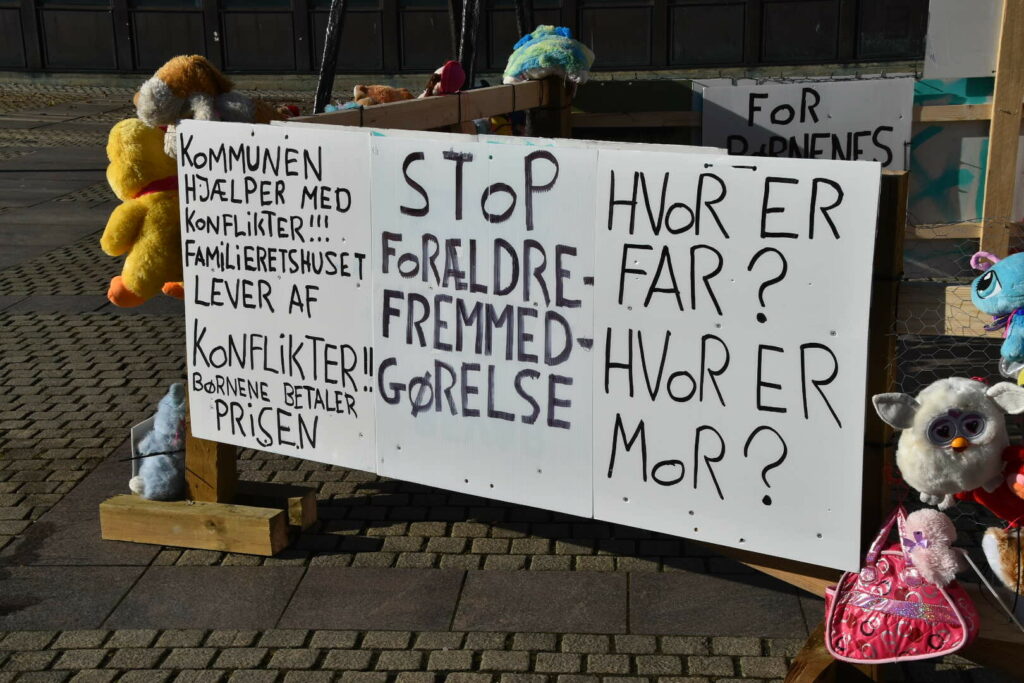 KOMMUNEN
HJÆLPER MED
KONFLIKTER!!!
FAMILIERETSHUSET
LEVER AF
KONFLIKTER!!
BØRNENE BETALER
PRISEN
STOP
FORÆLDRE-
FREMMED-
GØRELSE
HVOR ER
FAR?
HVOR ER
MOR?
FOR
BØRNENES